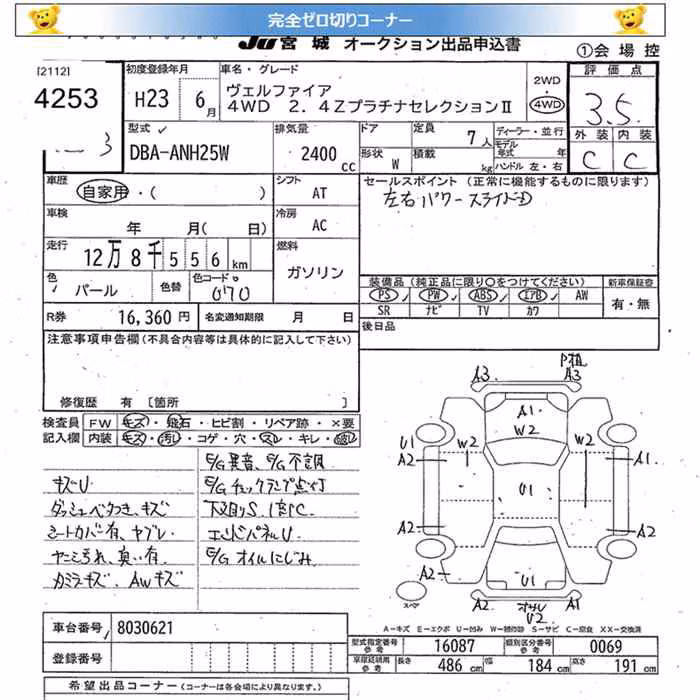 完全ゼロ切りコーナー
JU 宮城 オークション出品申込書
①会場控
[2112]
4253
3
初度登録年月
H23 6月
車名・グレード
ヴェルファイア
4WD 2.4ZプラチナセレクションⅡ
2WD
4WD
評価点
3.5
外装 内装
C C
型式
DBA-ANH25W
排気量
2400 cc
ドア
形状 W
定員 7人
積載 kg
ディーラー・並行
モデル年式 年
ハンドル 左・右
車歴
自家用・( )
シフト
AT
セールスポイント(正常に機能するものに限ります)
左右パワースライドD
車検
年 月( 日)
冷房
AC
走行
12万8千556km
燃料
ガソリン
色
パール
色替
色コード
070
装備品(純正品に限り○をつけてください)
新車保証書
PS PW ABS エアB AW
SR ナビ TV カワ
有・無
R券 16,360円
名変通知期限 月 日
後日品
注意事項申告欄(不具合内容等は具体的に記入して下さい)
修復歴 有 [箇所 ]
検査員記入欄
FW キズ・飛石・ヒビ割・リペア跡・×要
内装 キズ・汚れ・コゲ・穴・スレ・キレ・破レ
E/G異音、E/G不調
キズU
E/Gチェックランプ点灯
ダッシュベタつき、キズ
下廻りS、1部C
シートカバー有、ヤブレ
エンドパネルU
ヤニ汚れ、臭い有
E/Gオイルにじみ
カガミキズ、AWキズ
A3
A3
A1
W2
U1
A2
W2
W2
A1
U1
A2
A2
A2
U1
スペア
A2
A1
U2
A-キズ E-エクボ U-凹み W-補修跡 S-サビ C-腐食 XX-交換済
車台番号 8030621
登録番号
型式指定番号 16087
類別区分番号 0069
車庫証明用参考
長さ 486 cm
幅 184 cm
高さ 191 cm
希望出品コーナー(コーナーは各会場により異なります。)